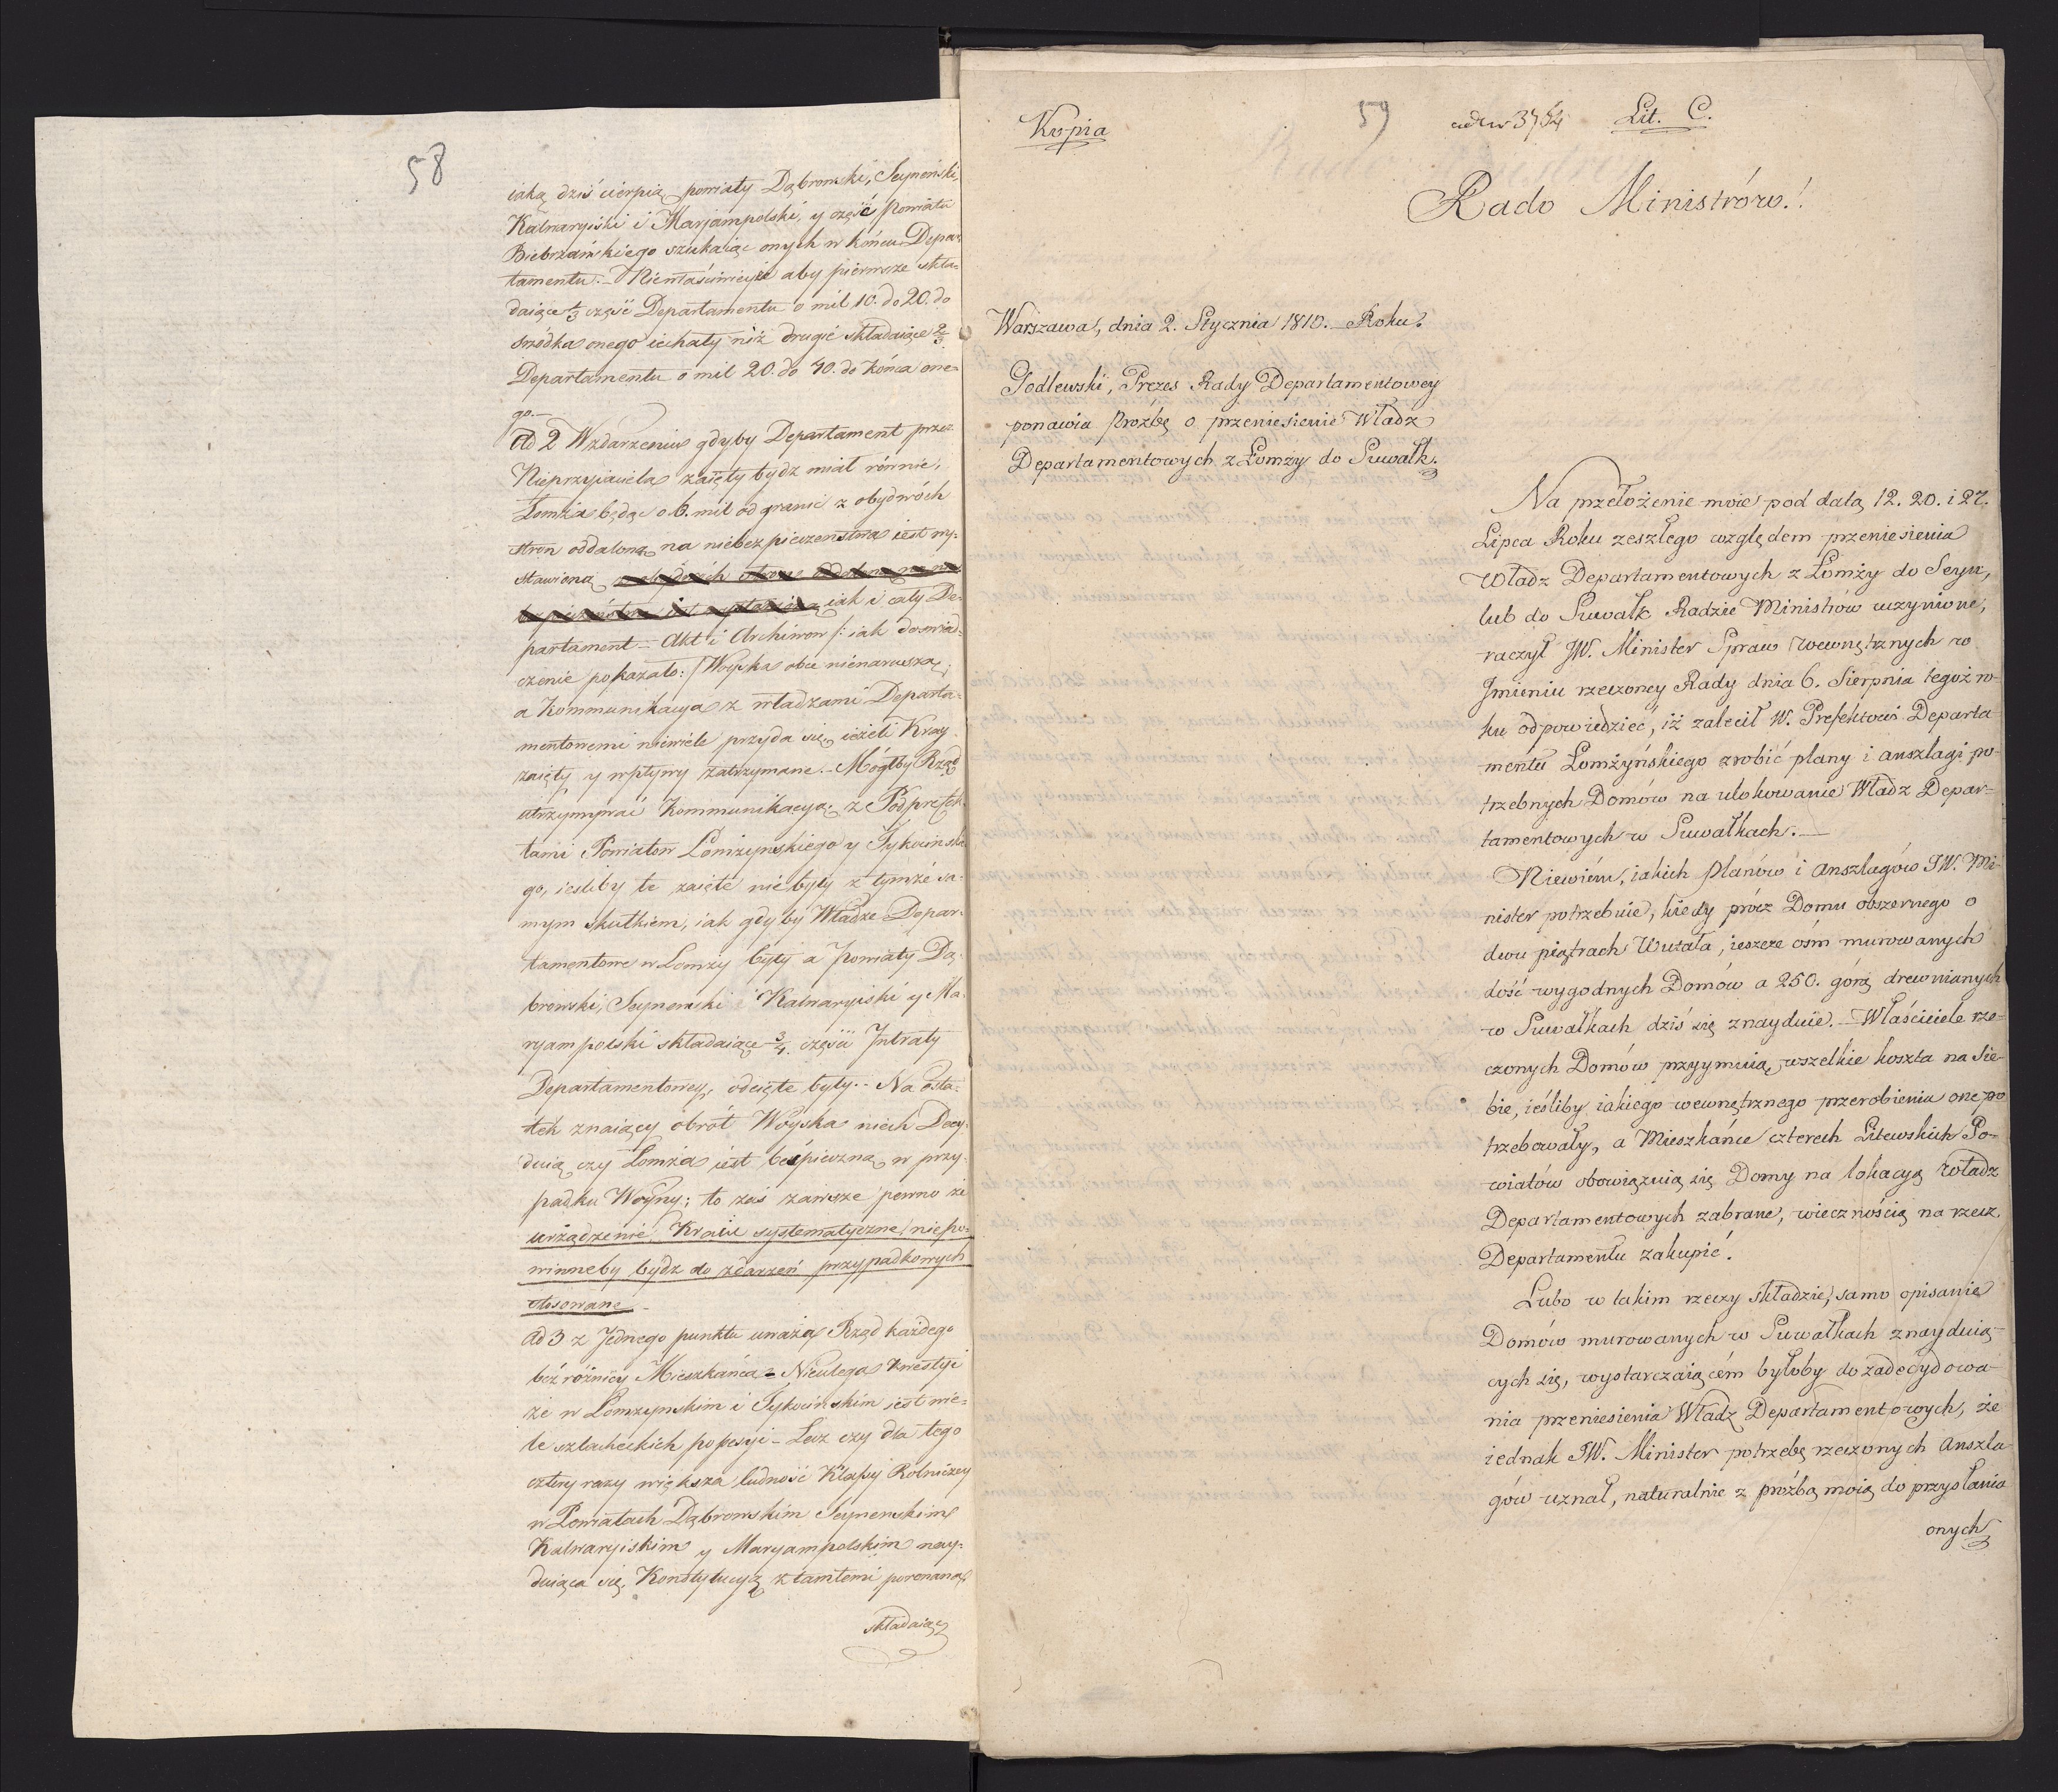 58
iaką dziś cierpią powiaty Dąbrowski, Seyneński,
Kalwaryiski i Marjampolski, y część Powiatu
Biebrzańskiego szukaiąc onych w końcu Depar=
tamentu. – Niewłaściwiey iż aby pierwsze skła=
daiące 1/3 część Departamentu o mil 10. do 20. do
srzódka onego iechały niż drugie składaiące 2/3.
Departamentu o mil 20. do 40. do końca one=
go. –
ad 2 W zdarzeniu gdyby Departament przez
Nieprzyiaciela zaięty bydz miał równie,
Łomża będąc o 6. mil od granic z obydwóch
stron oddaloną na niebezpieczenstwa iest wy=
stawioną iak i cały De=
partament – Akt i Archiwow /: iak doswiad=
czenie pokazało :/ Woyska obce nienaruszaą;
a Kommunikacya z władzami Departa=
mentowemi niewiele przyda się, ieżeli Kray
zaięty y wpływy zatrzymane. – Mógłby Rząd
utrzymywać Kommunikacyą z Podprefek=
tami Powiatow Łomżyńskiego y Tykocinskie
go, iesliby te zaięte nie były z tymże sa=
mym skutkiem, iak gdyby Władze Depar=
tamentowe w Łomży były a Powiaty Dą=
browski, Seynenski Kalwaryiski y Ma=
ryampolski składaiące 3/4. części Intraty
Departamentowey, odcięte były. – Na osta=
tek znaiący obrót Woyska niech Decy=
duią czy Łomża iest bespieczną w przy=
padku Woyny; to zaś zawsze pewno że
urządzenie Kraiu systematyczne niepo=
winneby bydz do zdarzeń przypadkowych
stosowane –
ad 3 z Jednego punktu uważa Rząd każdego
bez różnicy Mieszkańca = Nieulega kwestyi
że w Łomżyńskim i Tykocińskim iest wie=
le szlacheckich possessyi – Lecz czy dla tego
cztery razy większa ludność Klassy Rolniczey
w Powiatach Dąbrowskim Seynenskim
Kalwaryiskim y Maryampolskim nay=
duiąca się, Konstytucyą z tamtemi porownana,
składaiąc
Kopia
59
ad Nr 3754 Lit. C.
Rado Ministrów!
Warszawa, dnia 2. Stycznia 1810. Roku.
Godlewski, Prezes Rady Departamentowey
ponawia Prozbę o przeniesienie Władz
Departamentowych z Łomży do Suwałk.
Na przełożenie moie pod datą 12. 20. i 27.
Lipca Roku zeszłego względem przeniesienia
Władz Departamentowych z Łomży do Seyn,
lub do Suwałk Radzie Ministrów uczynione,
raczył JW. Minister Spraw Wewnętrznych w
Jmieniu rzeczoney Rady dnia 6. Sierpnia tegoż ro=
ku odpowiedzieć, iż zalecił W. Prefektowi Departa=
mentu Łomżyńskiego zrobić plany i anszlagi po=
trzebnych Domów na ulokowanie Władz Depar=
tamentowych w Suwałkach. —
Niewiem, iakich Planów i Anszlagów JW. Mi=
nister potrzebuie, kiedy prócz Domu obszernego o
dwu piątrach Wuzała, ieszcze ośm murowanych
dość wygodnych Domów a 250. górą drewnianych
w Suwałkach dziś się znayduie. – Właściciele rze=
czonych Domów przyymuią wszelkie koszta na Sie=
bie, ieśliby iakiego wewnętrznego przerobienia one po
trzebowały, a Mieszkańce czterech Litewskich Po=
wiatów obowiązuią się Domy na lokacyą Władz
Departamentowych zabrane, wiecznością na rzecz
Departamentu zakupić.
Lubo w takim rzeczy składzie, samo opisanie
Domów murowanych w Suwałkach znayduią=
cych się, wystarczaiącém byłoby do zadecydowa=
nia przeniesienia Władz Departamentowych, że
iednak JW. Minister potrzebę rzeczonych Anszla
gów uznał, naturalnie z prozbą moią do przysłania
onych